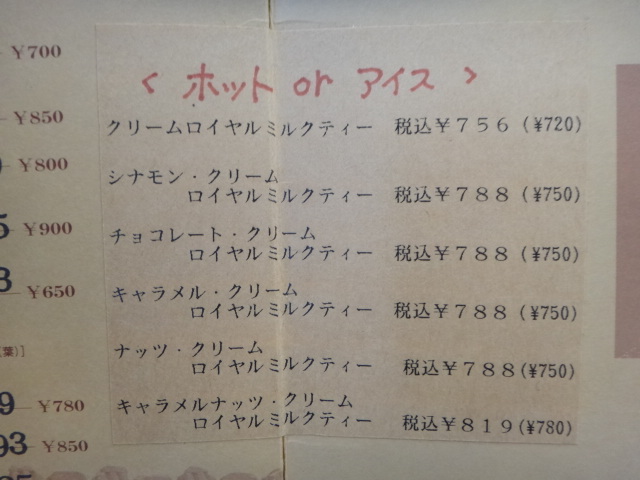 ¥700
¥850
¥800
5 ¥900
8 ¥650
葉)]
9 ¥780
93 ¥850
< ホット or アイス >
クリームロイヤルミルクティー 税込¥756(¥720)
シナモン・クリーム
ロイヤルミルクティー 税込¥788(¥750)
チョコレート・クリーム
ロイヤルミルクティー 税込¥788(¥750)
キャラメル・クリーム
ロイヤルミルクティー 税込¥788(¥750)
ナッツ・クリーム
ロイヤルミルクティー 税込¥788(¥750)
キャラメルナッツ・クリーム
ロイヤルミルクティー 税込¥819(¥780)